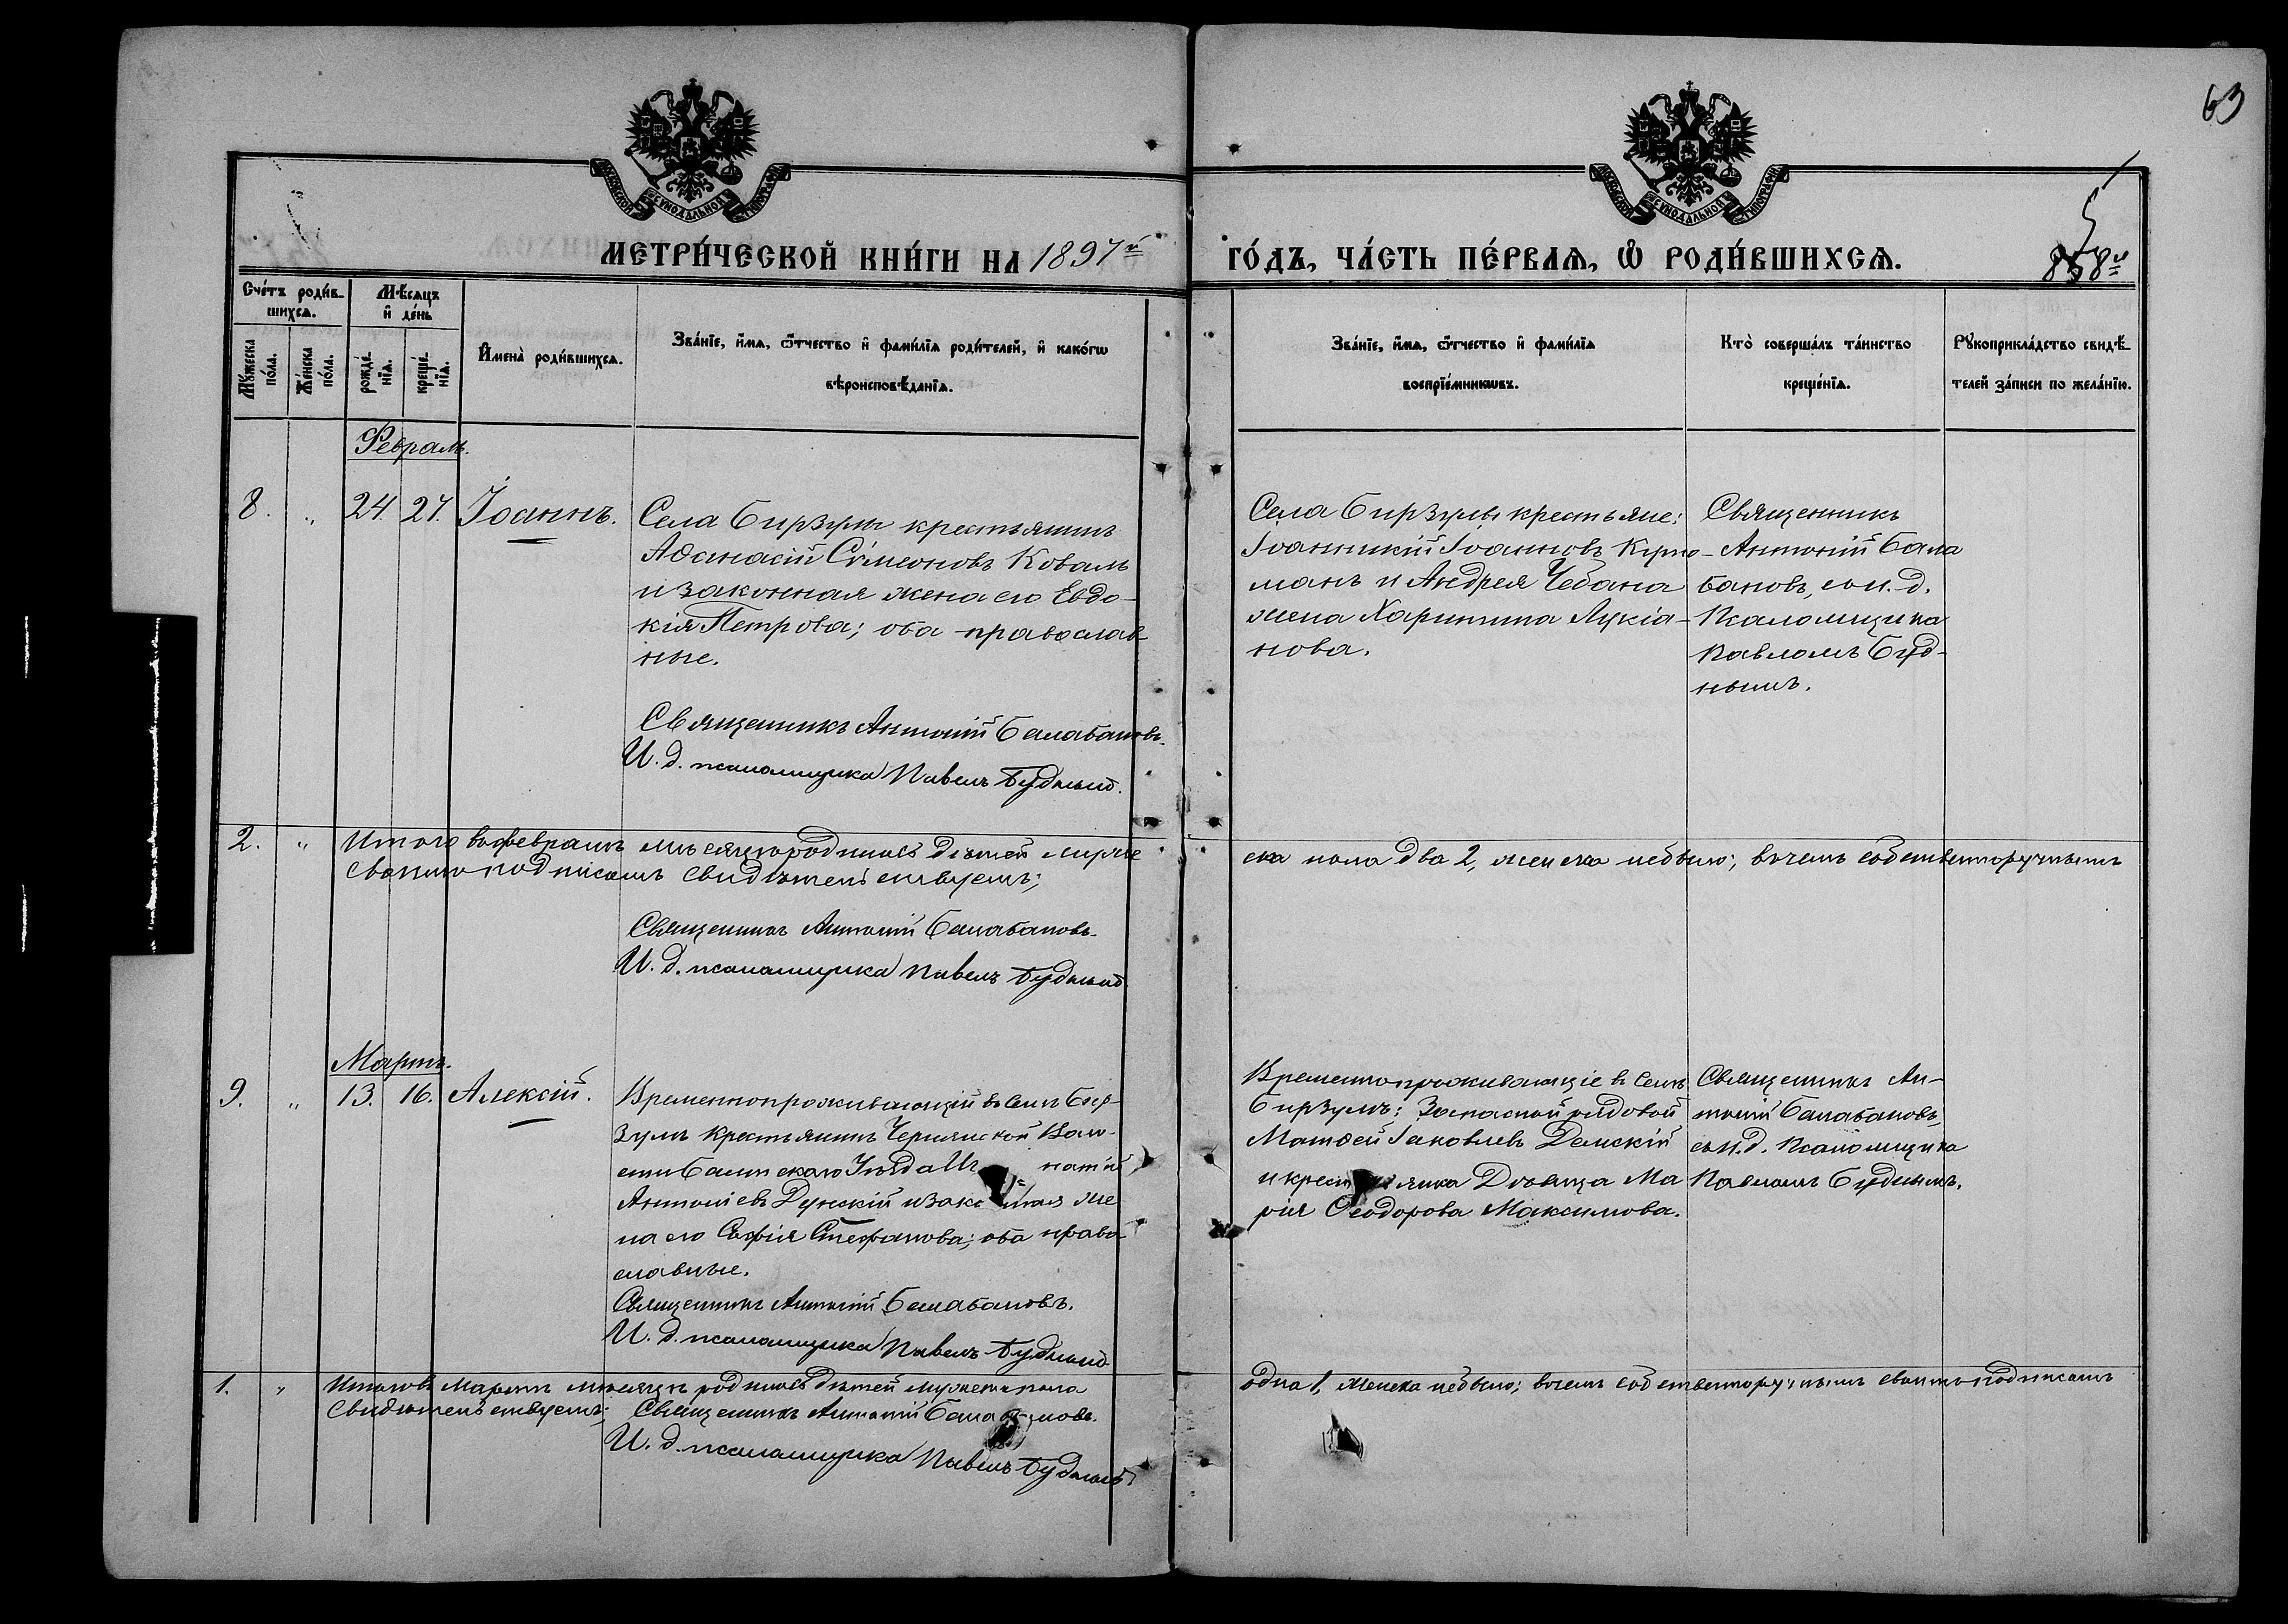 63
МОСКОВСКОЙ СѴНОДАЛЬНОЙ ТИПОГРАФІИ
МОСКОВСКОЙ СѴНОДАЛЬНОЙ ТИПОГРАФІИ
МЕТРИ́ЧЕСКОЙ КНИ́ГИ НА 1897й
ГО́ДЪ, ЧА́СТЬ ПЕ́РВАЯ, Ѽ РОДИ́ВШИХСЯ.
Сче́тъ роди́в-
шихсѧ.
Мѣ́сѧцъ
и҆ де́нь
Мꙋ́жеска по́ла.
Же́нска по́ла.
рожде́нїѧ.
креще́нїѧ.
И҆мена̀ роди́вшихсѧ.
Зва́нїе, и҆́мѧ, ѻ҆́тчество и҆ фами́лїѧ роди́телей, и҆ како́гѡ
вѣроисповѣ́данїѧ.
Зва́нїе, и҆́мѧ, ѻ҆́тчество и҆ фами́лїѧ
воспрїе́мникѡвъ.
Кто̀ соверша́лъ та́инство
креще́нїѧ.
Рꙋкоприкла́дство свидѣ́-
телей за́писи по жела́нїю.
Февраль.
8. " 24. 27. Іоаннъ.
Села Бирзулы крестьянинъ
Аѳанасій Сѵмеоновъ Коваль
и законная жена его Евдо-
кія Петрова; оба православ-
ные.
Священникъ Антоній Балабановъ.
И. д. псаломщика Павелъ Будный.
Села Бирзулы крестьяне:
Іоанникій Іоанновъ
манъ и Андрея Чебана
жена Харитина Лукіа-
нова.
Священникъ
Антоній Бала
бановъ, со и. д.
Псаломщика
Павломъ Буд-
нымъ.
2. " Итого въ февралѣ мѣсяцѣ родилось дѣтей муже
ска пола два 2, женска небыло; въ чемъ собственноручнымъ
своимъ подписомъ свидѣтельствуемъ;
Священникъ Антоній Балабановъ
И. д. псаломщика Павелъ Будный
Мартъ.
9. " 13. 16. Алексій.
Временнопроживающій въ Селѣ Бир-
зулѣ крестьянинъ Чернянской Воло-
сти Балтскаго Уѣзда
Антоніевъ Дунскій и законная же
на его Софія Стефанова; оба право
славные.
Священникъ Антоній Балабановъ.
И. д. псаломщика Павелъ Будный
Временнопроживающіе въ Селѣ
Бирзулѣ: Запасной рядовой
Матѳей Іаковлевъ Демскій
и крестьянка Дѣвица Ма
рія Ѳеодорова Максимова.
Священникъ Ан-
тоній Балабановъ,
со и. д. Псаломщика
Павломъ Буднымъ.
1. " Итого въ Мартѣ мѣсяцѣ родилось дѣтей мужеска пола
одна 1, женска небыло; въ чемъ собственноручнымъ своимъ подписомъ
свидѣтельствуемъ; Священникъ Антоній Балабановъ.
И. д. псаломщика Павелъ Будный